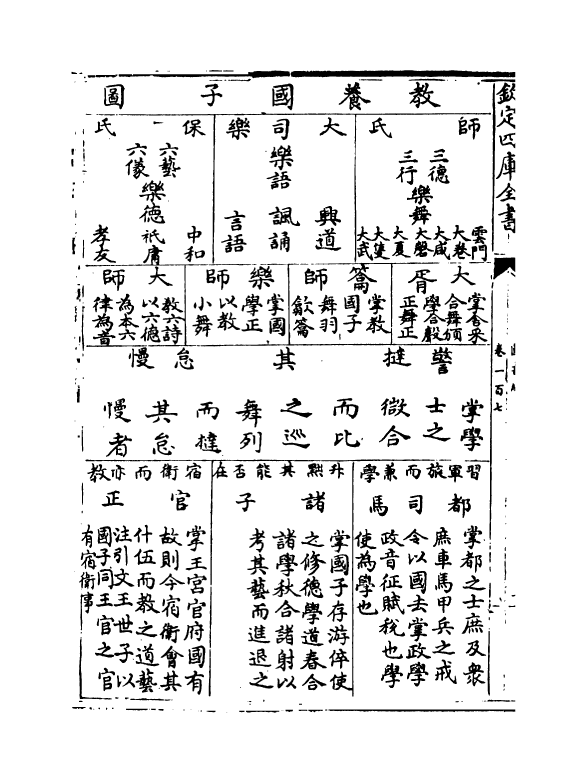 欽定四庫全書
卷一百七
教養國子圖
師氏
三德
三行
樂舞
雲門
大卷
大咸
大磬
大夏
大濩
大武
大司樂
樂語
興道
諷誦
言語
保氏
六藝
六儀
樂德
中和
祗庸
孝友
大胥
掌舍采
合舞頒
學合聲
正舞正
籥師
掌教
國子
舞羽
龡籥
樂師
掌國
學正
以教
小舞
大師
教六詩
以六德
為本六
律為音
觵撻其怠慢
掌學
士之
徵合
而比
之巡
舞列
而撻
其怠
慢者
習軍旅而兼學
都司馬
掌都之士庶及衆
庶車馬甲兵之戒
令以國去掌政學
政音征賦稅也學
使為學也
升黜其能否在
諸子
掌國子存游倅使
之修德學道春合
諸學秋合諸射以
考其藝而進退之
宿衛而亦教
官正
掌王宮官府國有
故則令宿衛會其
什伍而教之道藝
注引文王世子以
國子同王官之官
有宿衛事